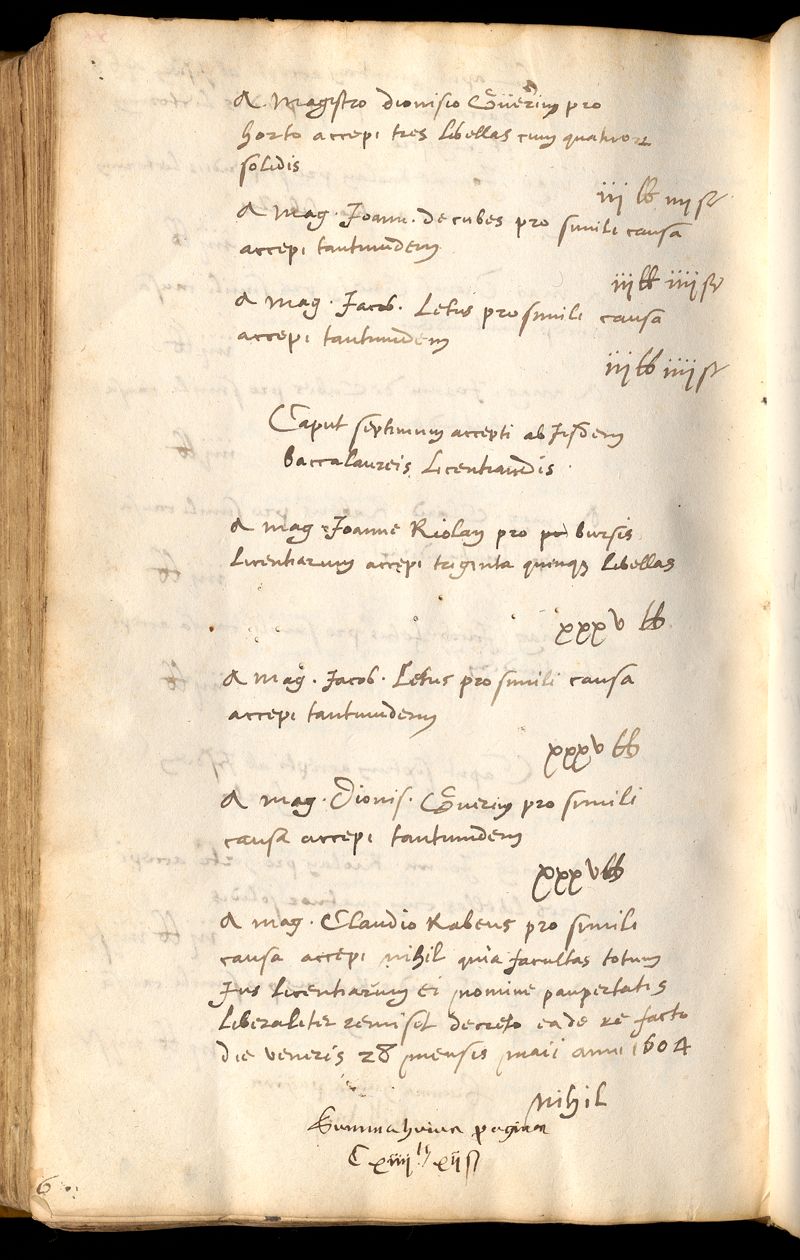 A Magistro dionisio Guerin pro
horto accepi tres libellas cum quatuor
solidis
iij lb iiij s
A mag. Joann. de cubes pro simili causa
accepi tantundem
iij lb iiij s
A mag. Jacob. Letus pro simili causa
accepi tantundem
iij lb iiij s
Caput septimum accepti ab iisdem
Baccalaureis Licentiandis.
A mag. Joanne Riolan pro bursis
Licentiarum accepi triginta quinq; libellas
xxxv lb
A mag. Jacob. Letus pro simili causa
accepi tantundem
xxxv lb
A mag. Dionis. Guerin pro simili
causa accepi tantundem
xxxv lb
A mag. Claudio Rabeus pro simili
causa accepi nihil quia facultas totum
Jus licentiarum ei nomine paupertatis
liberaliter remisit decreto ea de re facto
die veneris 28 mensis maii anni 1604
nihil
Summa huius paginae
C xiiij lb xij s
6